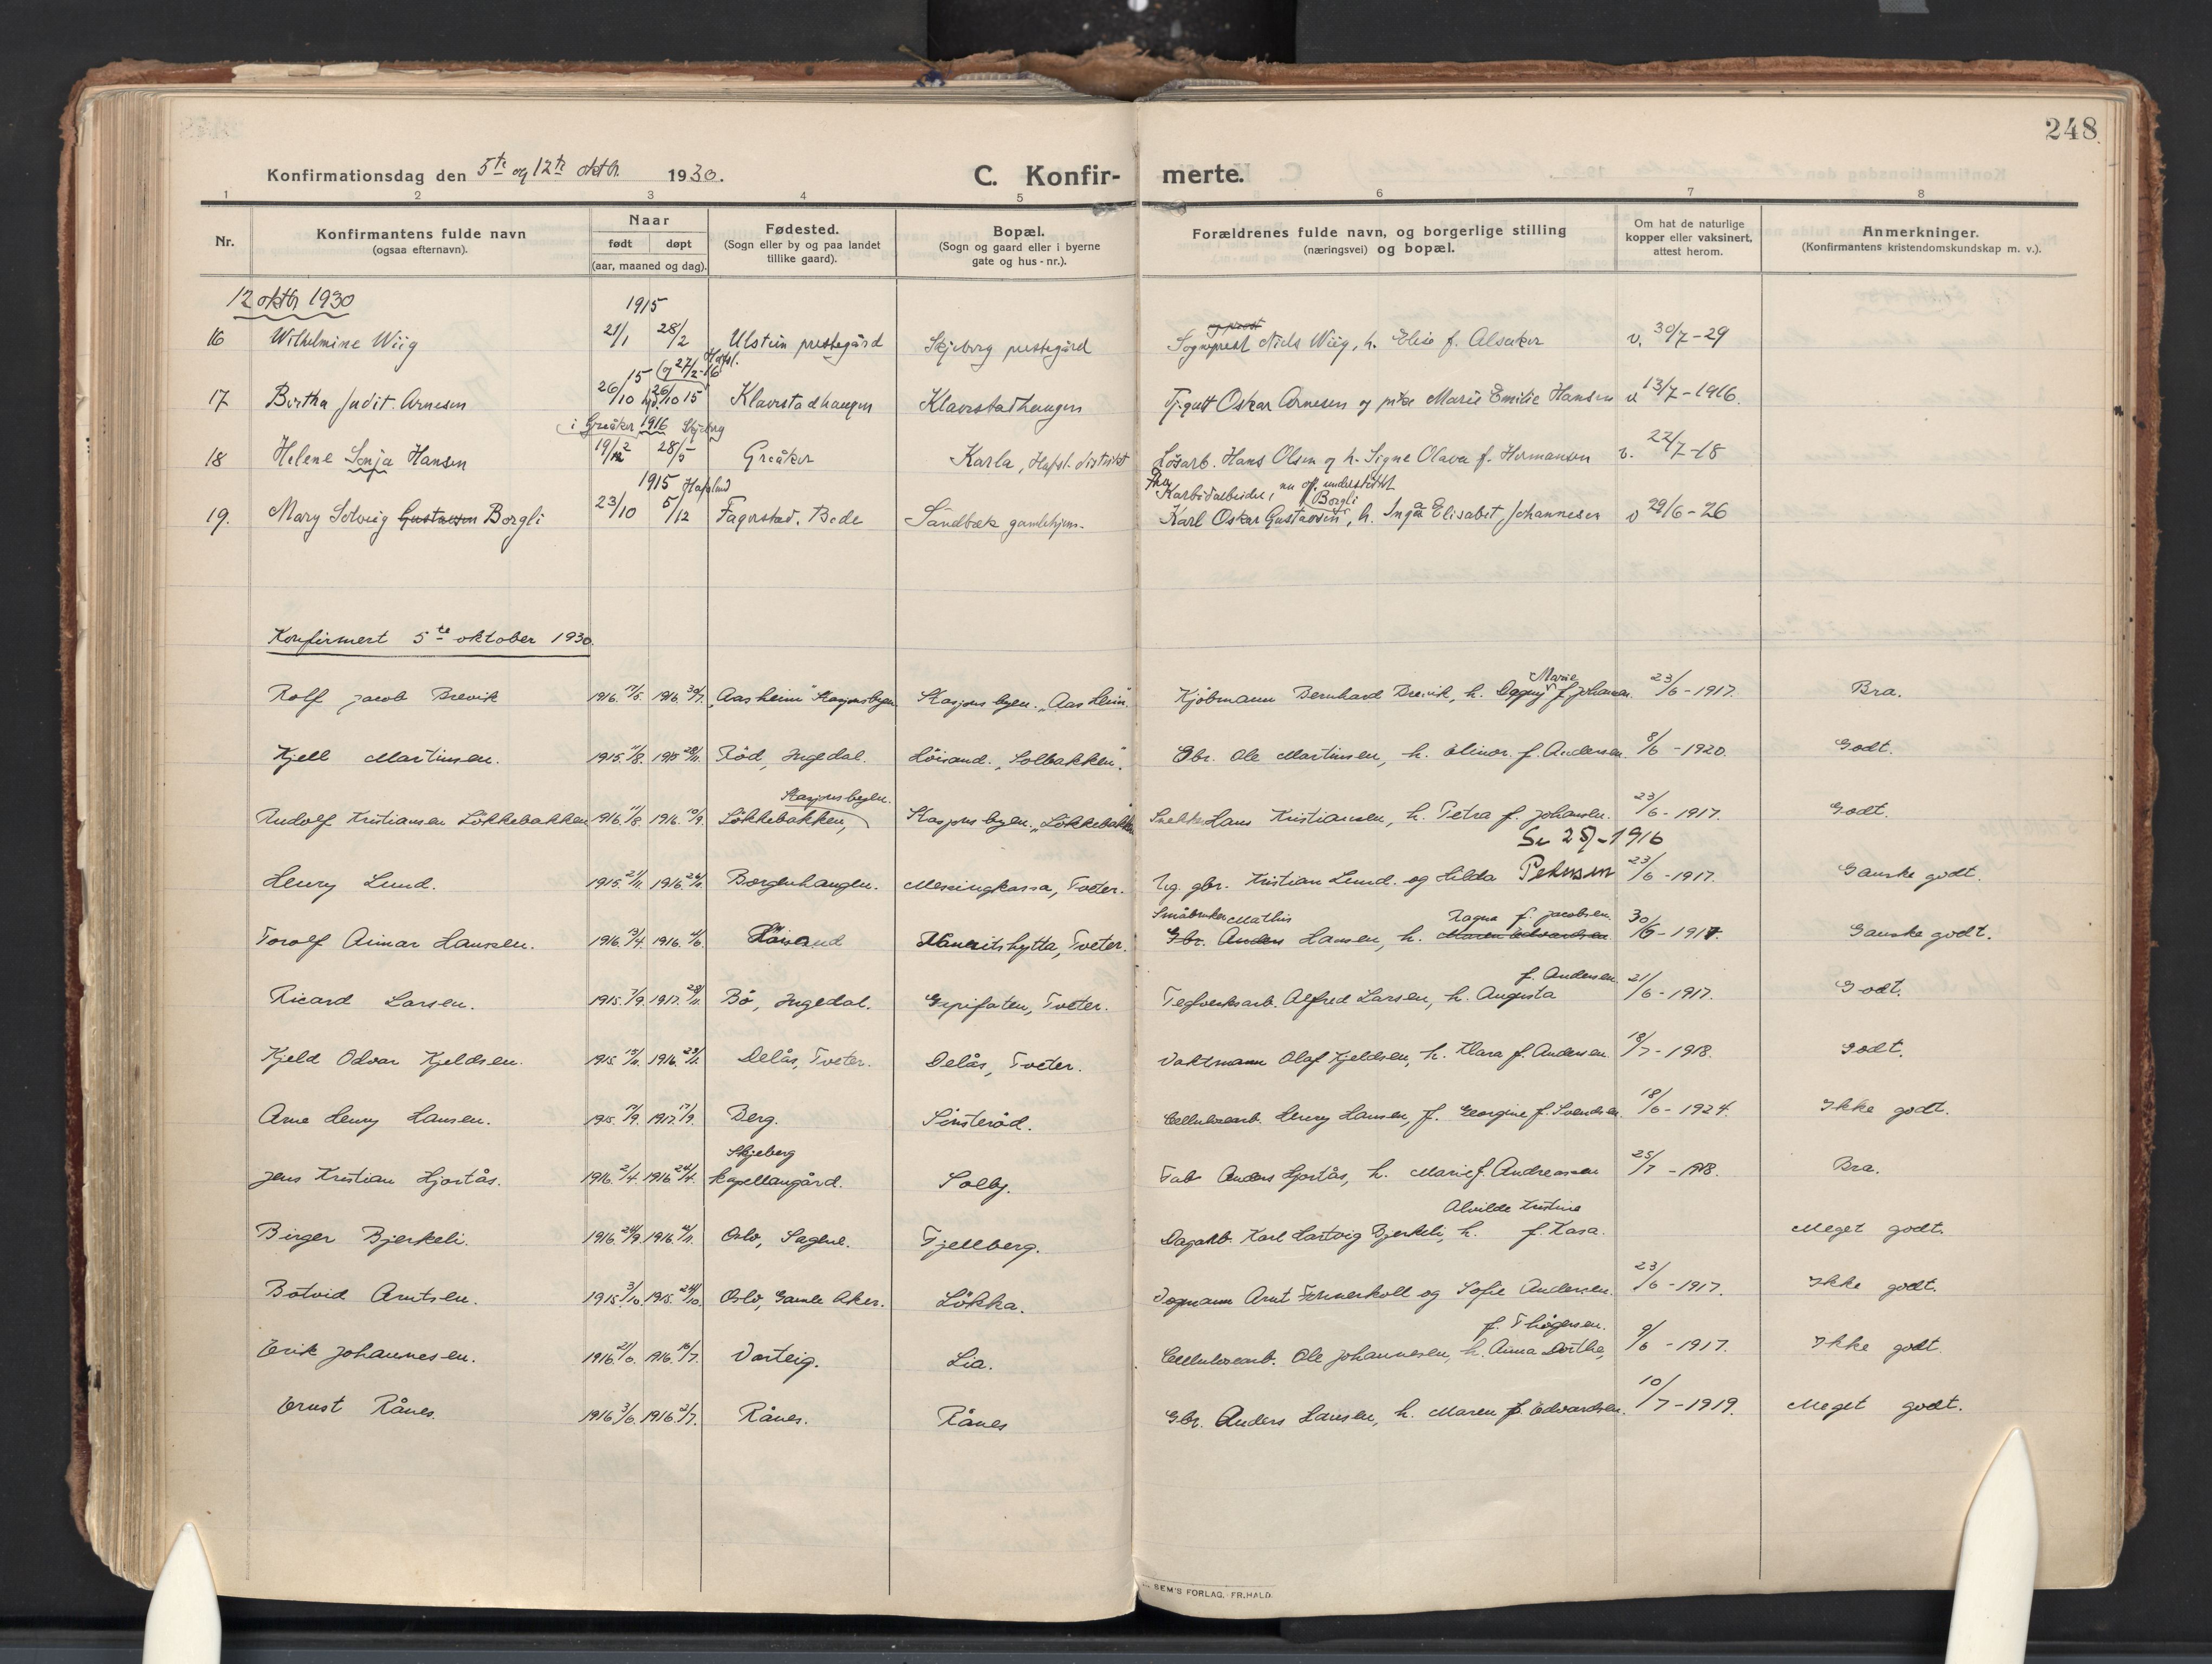 248
Konfirmationsdag den 5te og 12te oktbr. 1930. C. Konfirmerte.
1 2 3 4 5 6 7 8
Nr. Konfirmantens fulde navn (ogsaa efternavn). Naar født døpt (aar, maaned og dag). Fødested. (Sogn eller by og paa landet tillike gaard). Bopæl. (Sogn og gaard eller i byerne gate og hus-nr.). Forældrenes fulde navn, og borgerlige stilling (næringsvei) og bopæl. Om hat de naturlige kopper eller vaksinert, attest herom. Anmerkninger. (Konfirmantens kristendomskundskap m. v.).
12 oktbr 1930 1915
og prost
16 Wilhelmine Wiig 21/1 28/2 Ulstein prestegård Skjeberg prestegård Sogneprest Niels Wiig, h. Elise f. Alsaker v. 30/7-29
15 (og 27/2-16 Hafsl.
17 Bertha Judit Arnesen 26/10 26/10 15 Klavestadhaugen Klavestadhaugen Tj.gutt Oskar Arnesen og pike Marie Emilie Hansen v 13/7-1916.
i Greåker 1916 Skjeberg
18 Helene Sonja Hansen 19/12 28/5 Greåker Karla, Hafsl. distrikt Løsarb. Hans Olsen og h. Signe Olava f. Hermansen v. 22/7-18
1915 Hafslund Karbidarbeider, nu off. understøttet
Borgli
19. Mary Solveig Gustavsen Borgli 23/10 5/12 Fagerstad, Bede Sandbæk gamlehjem. Karl Oskar Gustavsen, h. Inga Elisabet Johannesen v 29/6-26
Konfirmert 5te oktober 1930.
Marie
Rolf Jacob Brevik 1916. 17/5. 1916. 30/7. "Aasheim" Stasjonsbyen Stasjonsbyen. "Aasheim". Kjøbmann Bernhard Brevik, h. Dagny f. Johansen. 23/6-1917. Bra.
Kjell Martinsen. 1915. 11/8. 1915 28/11. Röd, Ingedal. Höisand. "Solbakken". Gbr. Ole Martinsen, h. Elinor f. Andersen. 8/6-1920. Godt.
Stasjonsbyen.
Rudolf Kristiansen Lökkebakken 1916. 11/8. 1916. 10/9. Lökkebakken, Stasjonsbyen. "Lökkebakken Snekker Hans Kristiansen, h. Petra f. Johansen. 23/6-1917. Godt.
Henry Lund. 1915. 21/11. 1916. Borgenhaugen. Messingkassa, Tveter. Ug. gbr. Kristian Lund. og Hilda Petersen 23/6-1917. Ganske godt.
Småbruker Mathis Ragna f. Jacobsen.
Torolf Aimar Hansen. 1916. 13/4. 1916. Höisand Mauritshytta, Tveter. Gbr. Anders Hansen, h. Maren Edvardsen 30/6-1917. Ganske godt.
f. Andersen.
Ricard Larsen. 1915. 7/9. 1917. Bö, Ingedal. Grisefoten, Tveter. Teglverksarb. Alfred Larsen, h. Augusta 21/6-1917. Godt.
Kjeld Odvar Kjeldsen. 1915. 15/11. 1916. Delås, Tveter. Delås, Tveter. Vaktmann Olaf Kjeldsen, h. Klara f. Andersen. 18/7-1918. Godt.
Arne Henry Hansen. 1915. 1917. Berg. Sinsteröd. Cellulosearb. Henry Hansen, f. Georgine f. Svendsen. 18/6-1924. Ikke godt.
Skjeberg
Jens Kristian Hjortås. 1916. 2/4. 1916 24/4. kapellangård. Solby. Fab. Anders Hjortås, h. Marie f. Andreassen 25/7-1918. Bra.
Alvilde Kristine
Birger Bjerkeli. 1916. 24/9. 1916. Oslo, Sagene. Fjellberg. Dagarb. Karl Hartvig Bjerkeli, h. f. Kasa. Meget godt.
Botvid Arntsen. 1915. 3/10. 1915. 24/10. Oslo, Gamle Aker. Lökka. Vognmann Arnt og Sofie Andersen. 23/6-1917. Ikke godt.
f. Thögersen.
Erik Johannesen. 1916. 1916. 16/7. Varteig. Lia. Cellulosearb. Ole Johannesen, h. Anna Dorthe, 9/6-1917. Ikke godt.
Ernst Rånes. 1916. 3/6. 1916. 2/7. Rånes. Rånes Gbr. Anders Hansen, h. Maren f. Edvardsen. 10/7-1919. Meget godt.
SEM'S FORLAG. FR.HALD.